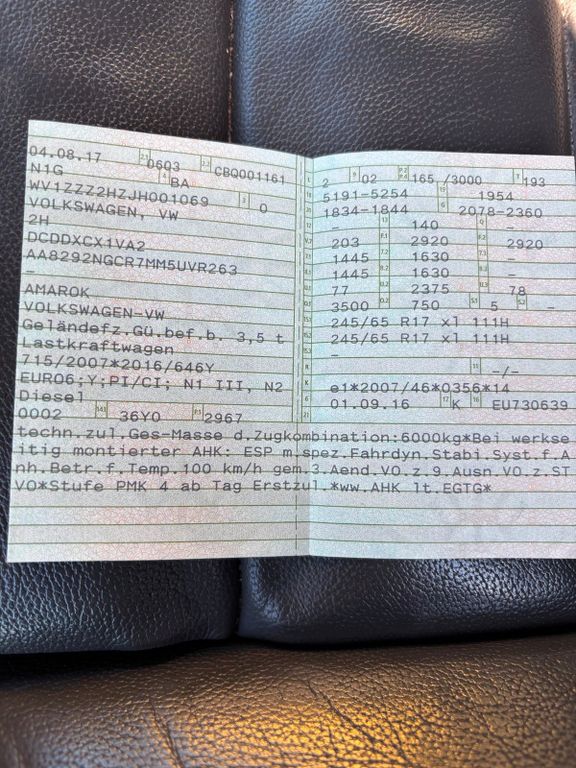 04.08.17 2.1 0603 2.2 CBQ001161
N1G 4 BA
WV1ZZZ2HZJH001069 3 0
VOLKSWAGEN, VW
2H
DCDDXCX1VA2
AA8292NGCR7MM5UVR263
–
AMAROK
VOLKSWAGEN-VW
Geländefz.Gü.bef.b. 3,5 t
Lastkraftwagen
715/2007*2016/646Y
EURO6;Y;PI/CI; N1 III, N2
Diesel
0002 14.1 36Y0 P.1 2967
2 9 02 P.2 P.4 165 /3000 T 193
18 5191-5254 19 1954
20 1834-1844 G 2078-2360
12 – 13 140 Q –
V.7 203 F.1 2920 F.2 2920
7.1 1445 7.2 1630 7.3 –
8.1 1445 8.2 1630 8.3 –
U.1 77 U.2 2375 U.3 78
O.1 3500 O.2 750 S.1 5 S.2 –
15.1 245/65 R17 xl 111H
15.2 245/65 R17 xl 111H
15.3 –
R 11 –/–
K e1*2007/46*0356*14
6 01.09.16 17 K 16 EU730639
21
techn.zul.Ges-Masse d.Zugkombination:6000kg*Bei werkse
itig montierter AHK: ESP m.spez.Fahrdyn.Stabi.Syst.f.A
nh.Betr.f.Temp.100 km/h gem.3.Aend.VO.z 9.Ausn VO.z.ST
VO*Stufe PMK 4 ab Tag Erstzul.*ww.AHK lt.EGTG*